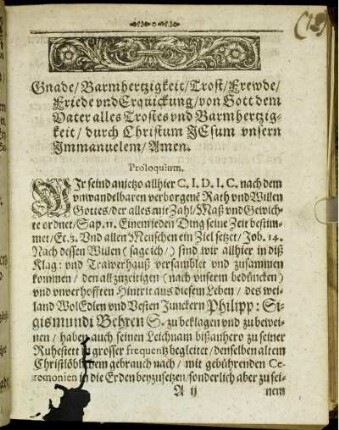 (12)
Gnade/ Barmhertzigkeit/ Trost/ Frewde/
Friede vnd Erquickung/ von Gott dem
Vater alles Trostes vnd Barmhertzig-
keit/ durch Christum JEsum vnsern
Immanuelem/ Amen.
Proloquium.
WIr seind anietzo allhier C. I. D. I. C. nach dem
vnwandelbaren verborgenē Rath vnd Willen
Gottes/ der alles mit Zahl/ Maß vnd Gewich-
te ordnet/ Sap. 11. Einem ieden Ding seine Zeit bestim-
met/ Ec. 3. Vnd allen Menschen ein Ziel setzet/ Job. 14.
Nach dessen Willen (sage ich/) sind wir allhier in diß
Klag- vnd Trawerhauß versamblet vnd zusammen
kommen/ den allzuzeitigen (nach vnserm bedüncken)
vnd vnverhofften Hintrit aus diesem Leben/ des wei-
land WolEdlen vnd Vesten Junckern Philipp: Si-
gismundi Behren S. zu beklagen vnd zu bewei-
nen/ haben auch seinen Leichnam bißanhero zu seiner
Ruhestett in grosser frequentz begleitet/ denselben altem
Christlöbl dem gebrauch nach/ mit gebührenden Ce-
remonien in die Erden beyzusetzen/ sonderlich aber zu sei-
A ij
nem